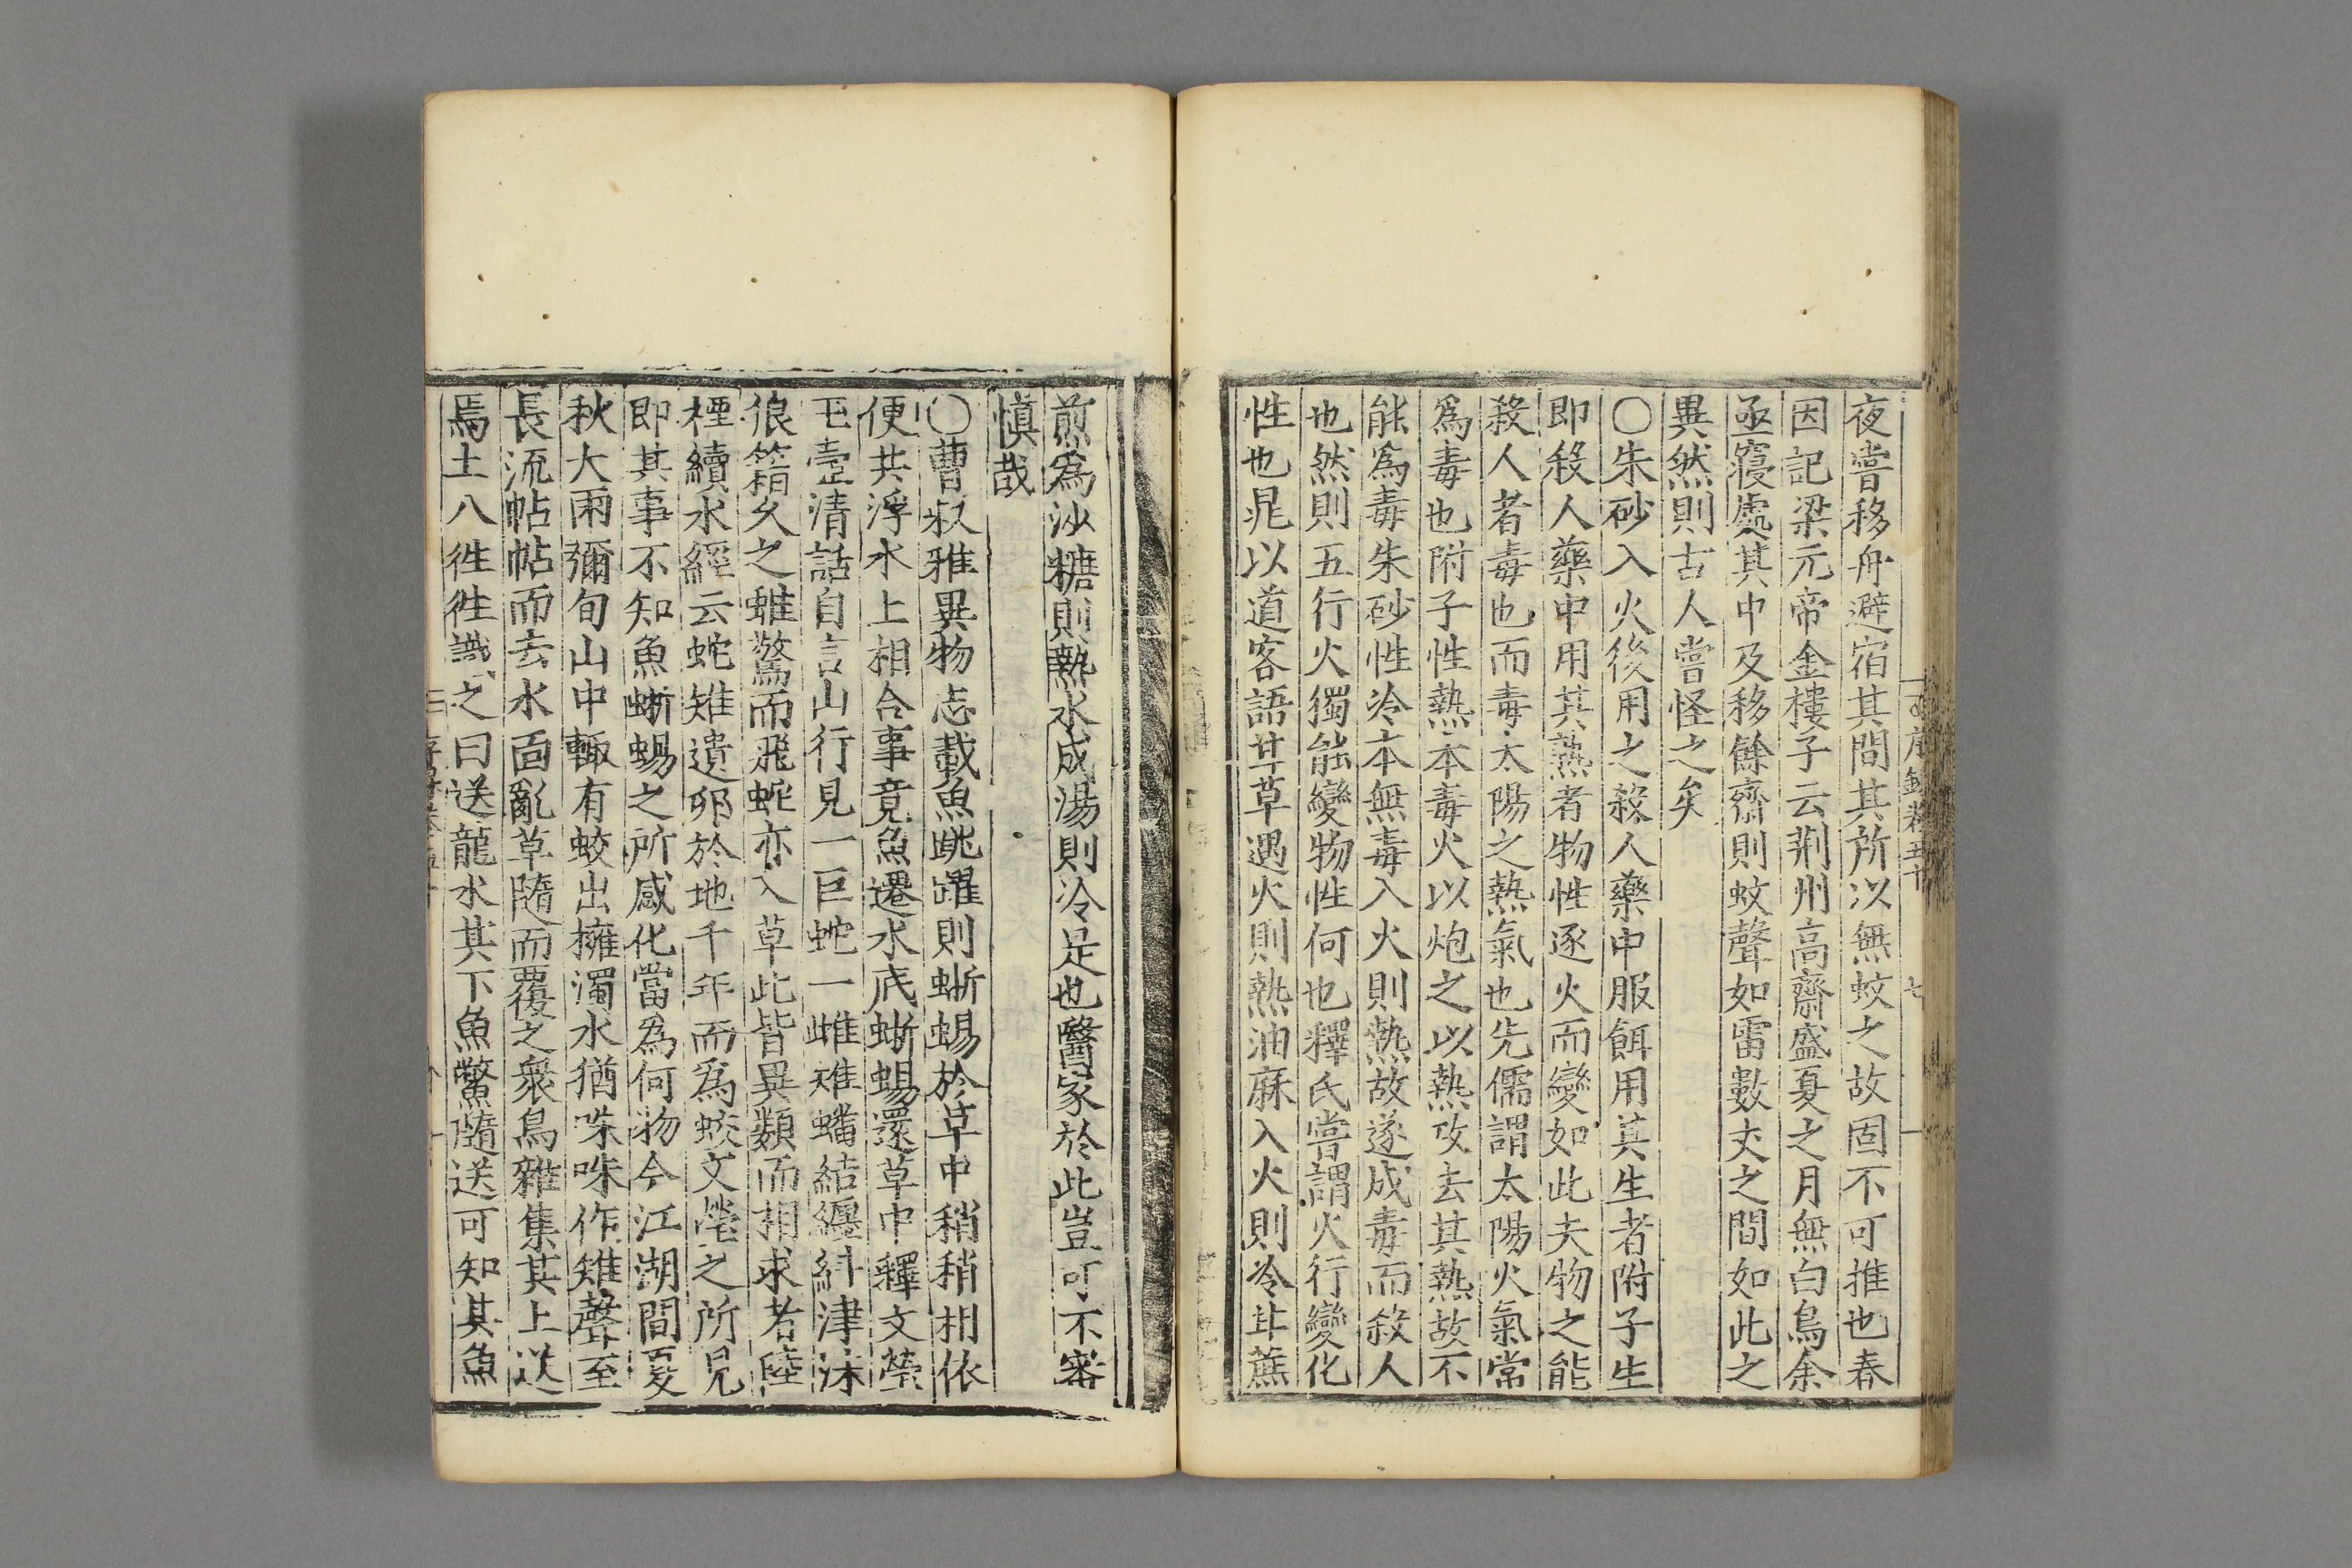 夜嘗移舟避宿其間其所以無蚊之故固不可推也春
因記梁元帝金樓子云荆州高齋盛夏之月無白鳥余
亟寢處其中及移餘齋則蚊聲如雷數丈之間如此之
異然則古人嘗怪之矣
〇朱砂入火後用之殺人藥中服餌用其生者附子生
即殺人藥中用其熟者物性逐火而變如此夫物之能
殺人者毒也而毒太陽之熱氣也先儒謂太陽火氣常
爲毒也附子性熱本毒火以炮之以熱攻去其熱故不
能爲毒朱砂性冷本無毒入火則熱故遂成毒而殺人
也然則五行火獨能變物性何也釋氏嘗謂火行變化
性也晁以道客語甘草遇火則熱油麻入火則冷甘蔗
煎為沙糖則熱水成湯則冷是也醫家於此豈可不審
慎哉
〇曹叔雅異物志載魚跳躍則蜥蜴於草中稍稍相依
便共浮水上相合事竟魚還水底蜥蜴還草中釋文瑩
玉壺清話自言山行見一巨蛇一雌雉蟠結纏糾津沫
狼籍久之雉驚而飛蛇亦入草此皆異類而相求若陸
禋續水經云蛇雉遺卵於地千年而爲蛟文瑩之所見
即其事不知魚蜥蜴之所感化當為何物今江湖間夏
秋大雨彌旬山中輙有蛟出擁濁水猶咮咮作雉聲至
長流帖帖而去水面亂草隨而覆之衆鳥雜集其上送
焉土人徃徃識之曰送龍水其下魚鱉隨送可知其魚